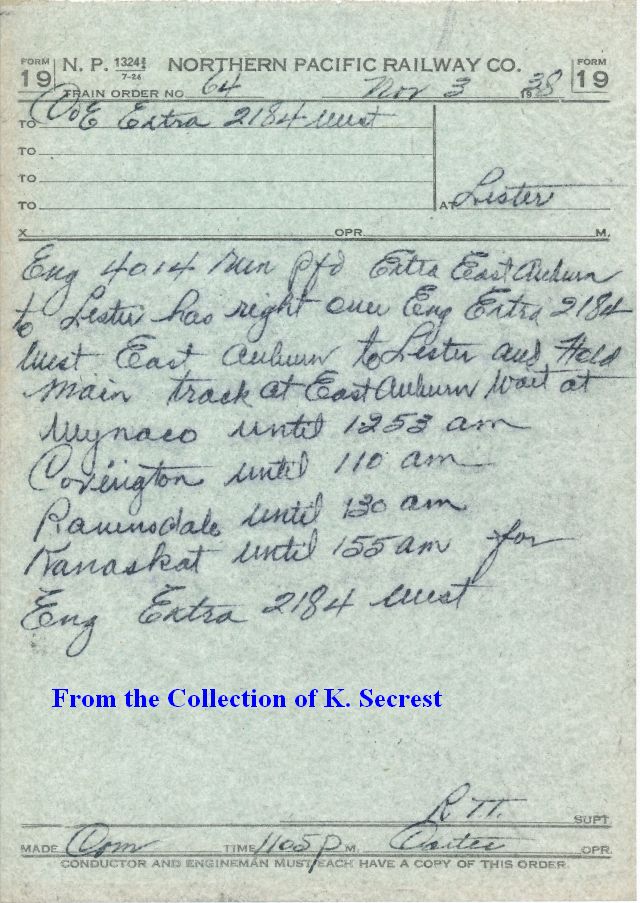 FORM 19 N. P. 1324½ 7-26 NORTHERN PACIFIC RAILWAY CO. FORM 19
TRAIN ORDER NO. 64 Nov 3 1938
TO C&E Extra 2184 West
TO
TO
TO AT Lester
X OPR. M.
Eng 4014 run pfd Extra East Auburn
to Lester has right over Eng Extra 2184
West East Auburn to Lester and Hold
main track at East Auburn Wait at
Wynaco until 1253 am
Covington until 110 am
Ravensdale until 130 am
Kanaskat until 155 am for
Eng Extra 2184 West
From the Collection of K. Secrest
R.T.T. SUPT.
MADE Com TIME 1105 P M. OPR.
CONDUCTOR AND ENGINEMAN MUST EACH HAVE A COPY OF THIS ORDER.